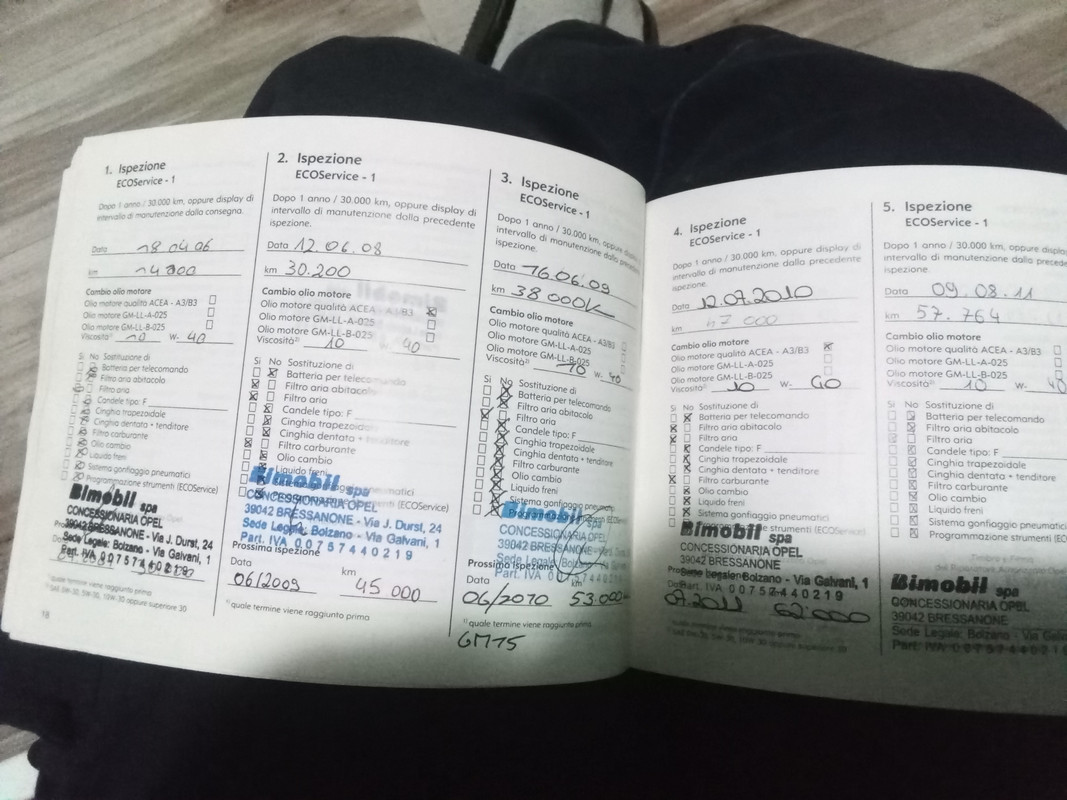 1. Ispezione
ECOService - 1
Dopo 1 anno / 30.000 km, oppure display di
intervallo di manutenzione dalla consegna.
Data 18.04.06
km
Cambio olio motore
Olio motore qualità ACEA - A3/B3
Olio motore GM-LL-A-025
Olio motore GM-LL-B-025
Viscosità²⁾ 10 w- 40
Si No Sostituzione di
Batteria per telecomando
Filtro aria abitacolo
Filtro aria
Candele tipo: F
Cinghia trapezoidale
Cinghia dentata + tenditore
Filtro carburante
Olio cambio
Liquido freni
Sistema gonfiaggio pneumatici
Programmazione strumenti (ECOService)
Bimobil spa
CONCESSIONARIA OPEL
39042 BRESSANONE - Via J. Durst, 24
Sede Legale: Bolzano - Via Galvani, 1
Part. IVA 00757440219
¹⁾ quale termine viene raggiunto prima
18
2. Ispezione
ECOService - 1
Dopo 1 anno / 30.000 km, oppure display di
intervallo di manutenzione dalla precedente
ispezione.
Data 12.06.08
km 30.200
Cambio olio motore
Olio motore qualità ACEA - A3/B3
Olio motore GM-LL-A-025
Olio motore GM-LL-B-025
Viscosità²⁾ 10 40
Si No Sostituzione di
Batteria per telecomando
Filtro aria abitacolo
Filtro aria
Candele tipo: F
Cinghia trapezoidale
Cinghia dentata + tenditore
Filtro carburante
Olio cambio
Liquido freni
Bimobil spa
CONCESSIONARIA OPEL
39042 BRESSANONE - Via J. Durst, 24
Sede Legale: Bolzano - Via Galvani, 1
Part. IVA 00757440219
Prossima ispezione
Data km
06/2009 45 000
¹⁾ quale termine viene raggiunto prima
3. Ispezione
ECOService - 1
Dopo 1 anno / 30.000 km, oppure display di
intervallo di manutenzione dalla
ispezione.
Data 16.06.09
km 38 000
Cambio olio motore
Olio motore qualità ACEA - A3/B3
Olio motore GM-LL-A-025
Olio motore GM-LL-B-025
Viscosità²⁾ 10 w- 40
Si No Sostituzione di
Batteria per telecomando
Filtro aria abitacolo
Filtro aria
Candele tipo: F
Cinghia trapezoidale
Cinghia dentata + tenditore
Filtro carburante
Olio cambio
Liquido freni
Sistema gonfiaggio
Bimobil spa
CONCESSIONARIA OPEL
39042 BRESSANONE
Sede Legale
Prossima ispezione
Part. IVA
Data km
06/2010 53.000
¹⁾ quale termine viene raggiunto prima
GM15
4. Ispezione
ECOService - 1
Dopo 1 anno / 30.000 km, oppure display di
intervallo di manutenzione dalla precedente
ispezione.
Data 12.07.2010
km 47 000
Cambio olio motore
Olio motore qualità ACEA - A3/B3
Olio motore GM-LL-A-025
Olio motore GM-LL-B-025
Viscosità²⁾ 10 w- 40
Si No Sostituzione di
Batteria per telecomando
Filtro aria abitacolo
Filtro aria
Candele tipo: F
Cinghia trapezoidale
Cinghia dentata + tenditore
Filtro carburante
Olio cambio
Liquido freni
Sistema gonfiaggio pneumatici
strumenti (ECOService)
Bimobil spa
CONCESSIONARIA OPEL
39042 BRESSANONE
Sede Legale: Bolzano - Via Galvani, 1
Part. IVA 00757440219
07.2011 62.000
¹⁾ quale termine viene raggiunto prima
5. Ispezione
ECOService - 1
Dopo 1 anno / 30.000 km, oppure
intervallo di manutenzione dalla
ispezione.
Data 09.08.11
km 57.764
Cambio olio motore
Olio motore qualità ACEA - A3/B3
Olio motore GM-LL-A-025
Olio motore GM-LL-B-025
Viscosità²⁾ 10 w- 40
Si No Sostituzione di
Batteria per telecomando
Filtro aria abitacolo
Filtro aria
Candele tipo: F
Cinghia trapezoidale
Cinghia dentata + tenditore
Filtro carburante
Olio cambio
Liquido freni
Sistema gonfiaggio pneumatici
Programmazione strumenti
Bimobil spa
CONCESSIONARIA OPEL
39042 BRESSANONE
Sede Legale: Bolzano - Via
Part. IVA 0075744021